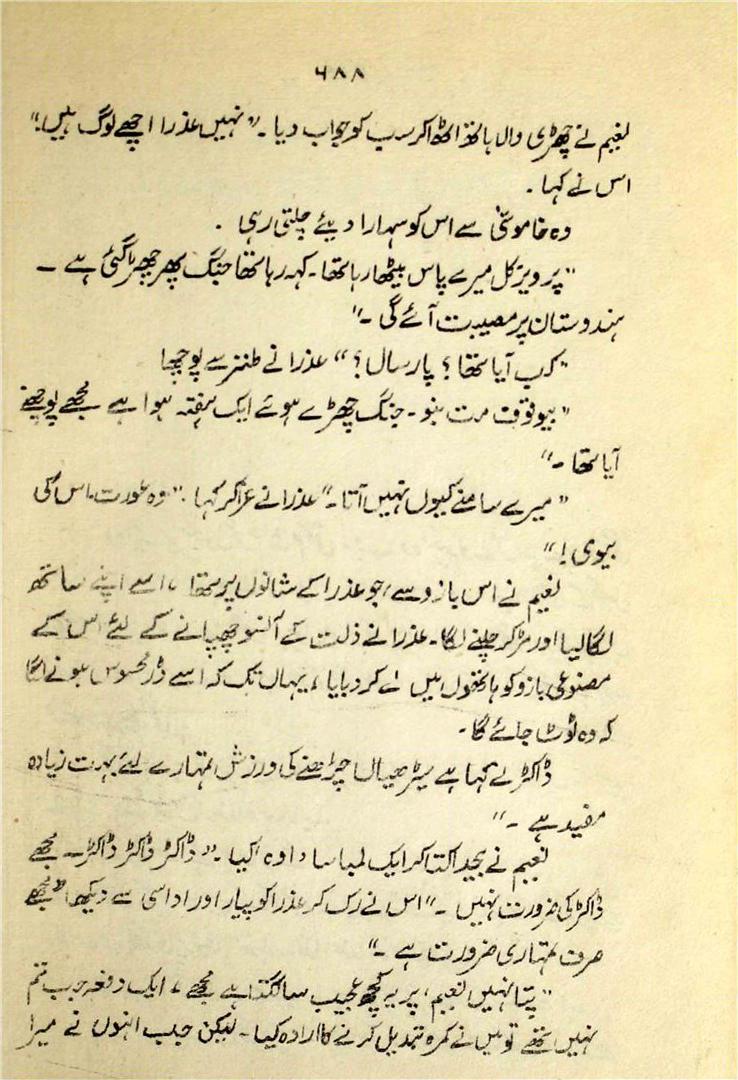 ۶۸۸
نعیم نے چھڑی والا ہاتھ اٹھا کر سب کو جواب دیا ۔ ”نہیں عذرا اچھے لوگ ہیں“
اس نے کہا ۔
وہ خاموشی سے اس کو سہارا دیئے چلتی رہی ۔
”پرویز کل میرے پاس بیٹھا رہا تھا ۔ کہہ رہا تھا جنگ پھر چھڑ گئی ہے ــ
ہندوستان پر مصیبت آئے گی ۔“
”کب آیا تھا ؟ پار سال ؟“ عذرا نے طنز سے پوچھا
”بیوقوف مت بنو ۔ جنگ چھڑے ہوئے ایک ہفتہ ہوا ہے مجھے پوچھنے
آیا تھا ۔“
”میرے سامنے کیوں نہیں آتا ۔“ عذرا نے غرا کر کہا ۔ ”وہ عورت۔ اس کی
بیوی !“
نعیم نے اس بازو سے ، جو عذرا کے شانوں پر تھا ، اسے اپنے ساتھ
لگا لیا اور مڑ کر چلنے لگا ۔ عذرا نے ذلت کے آنسو چھپانے کے لئے اس کے
مصنوعی بازو کو ہاتھوں میں لے کر دبایا ، یہاں تک کہ اسے ڈر محسوس ہونے لگا
کہ وہ ٹوٹ جائے گا ۔
ڈاکٹر نے کہا ہے سیڑھیاں چڑھنے کی ورزش تمہارے لئے بہت زیادہ
مفید ہے ۔“
نعیم نے بیحد اکتا کر ایک لمبا سا ’اوہ‘ کیا ۔ ”ڈاکٹر ڈاکٹر ڈاکٹر ــ مجھے
ڈاکٹر کی ضرورت نہیں ۔“ اس نے رک کر عذرا کو پیار اور اداسی سے دیکھا ”مجھے
صرف تمہاری ضرورت ہے ۔“
”پتا نہیں نعیم ، پر یہ کچھ عجیب سا لگتا ہے مجھے ، ایک دفعہ جب تم
نہیں تھے تو میں نے کمرہ تبدیل کرنے کا ارادہ کیا ۔ لیکن جب انہوں نے میرا